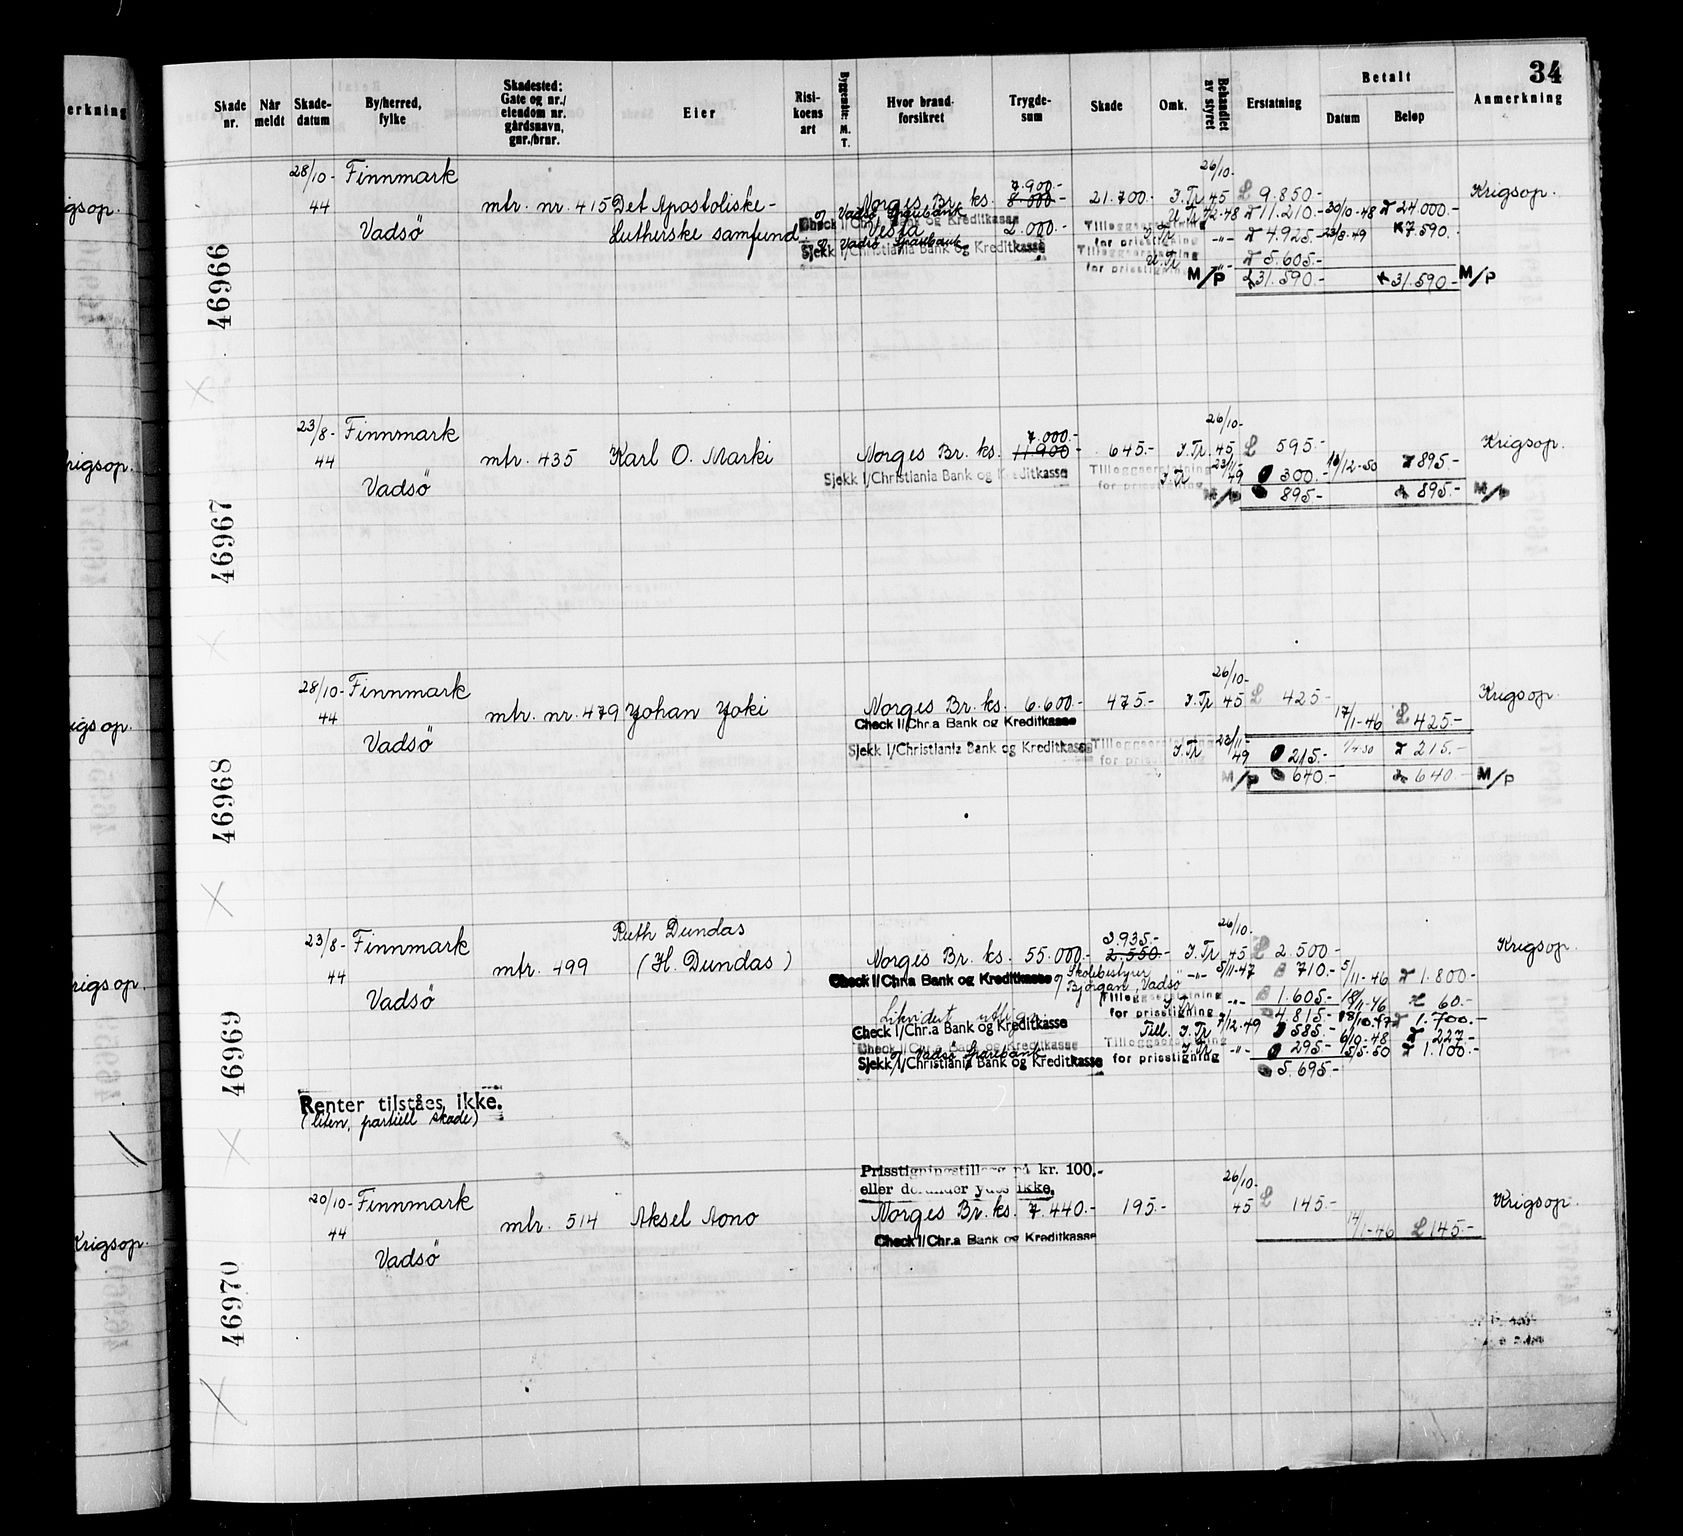 34
Skade nr.
Når meldt
Skade-datum
By/herred, fylke
Skadested: Gate og nr./ eiendom nr. gårdsnavn, gnr./brnr.
Eier
Risi-koens art
M. T.
Hvor brand-forsikret
Trygde-sum
Skade
Omk.
Behandlet av styret
Erstatning
Betalt
Datum
Beløp
Anmerkning
erkning
46966
28/10-44 Finnmark
Vadsö
mtr. nr. 415 Det Apostoliske-
Lutherske samfund
Norges Br. ks. 7.900.-
Vesta 2.000.-
21.700.- J.Tr. 26/10-45 9.850.-
Check I/Chr.a Bank og Kreditkasse
Vadsö Sparebank
Sjekk I/Christiania Bank og Kreditkasse
Tilleggserstatning for prisstigning
11.210.- 30/10-48 24.000.-
4.925.- 23/8-49 7.590.-
5.605.-
M/P 31.590.- 31.590.- M/P
Krigsop.
46967
23/8-44 Finnmark
Vadsö
mtr. 435 Karl O. Marki
Norges Br. ks. 7.000.-
11900
645.- J.Tr. 26/10-45 595.-
Sjekk I/Christiania Bank og Kreditkasse
Tilleggserstatning for prisstigning
J.Tr. 23/11-49 300.- 895.-
M/P 895.- 895.- M/P
Krigsop.
46968
28/10-44 Finnmark
Vadsö
mtr. nr. 479 Yohan Yoki
Norges Br. ks. 6.600.- 475.- J.Tr. 26/10-45 425.-
17/1-46 425.-
Check I/Chr.a Bank og Kreditkasse
Sjekk I/Christiania Bank og Kreditkasse
Tilleggserstatning for prisstigning
J.Tr. 23/11-49 215.- 215.-
M/P 640.- 640.- M/P
Krigsop.
46969
23/8-44 Finnmark
Vadsö
mtr. 499
Ruth Dundas
(H. Dundas)
Norges Br. ks. 55.000.- 3.935.-
2,550.-
J.Tr. 26/10-45 2.500.-
Check I/Chr.a Bank og Kreditkasse
Skolebestyrer Bjørgan, Vadsö
5/11-47 710.- 5/11-46 1.800.-
Tilleggserstatning for prisstigning
1.605.- 60.-
4.815.- 1.700.-
Check I/Chr.a Bank og Kreditkasse
Till. J.Tr. 7/12-49 585.- 6/10-48 227.-
Check I/Chr.a Bank og Kreditkasse
Vadsö Sparebank
Sjekk I/Christiania Bank og Kreditkasse
Tilleggserstatning for prisstigning
295.- 15/5-50 1.100.-
5.695.-
Krigsop.
Renter tilståes ikke.
(liten, partiell skade)
46970
Prisstigningstillegg på kr. 100,-
eller derunder ydes ikke.
20/10-44 Finnmark
Vadsö
mtr. 514 Aksel Aono
Norges Br. ks. 7.440.- 195.- 26/10-45 145.-
14/1-46 145.-
Check I/Chr.a Bank og Kreditkasse
Krigsop.